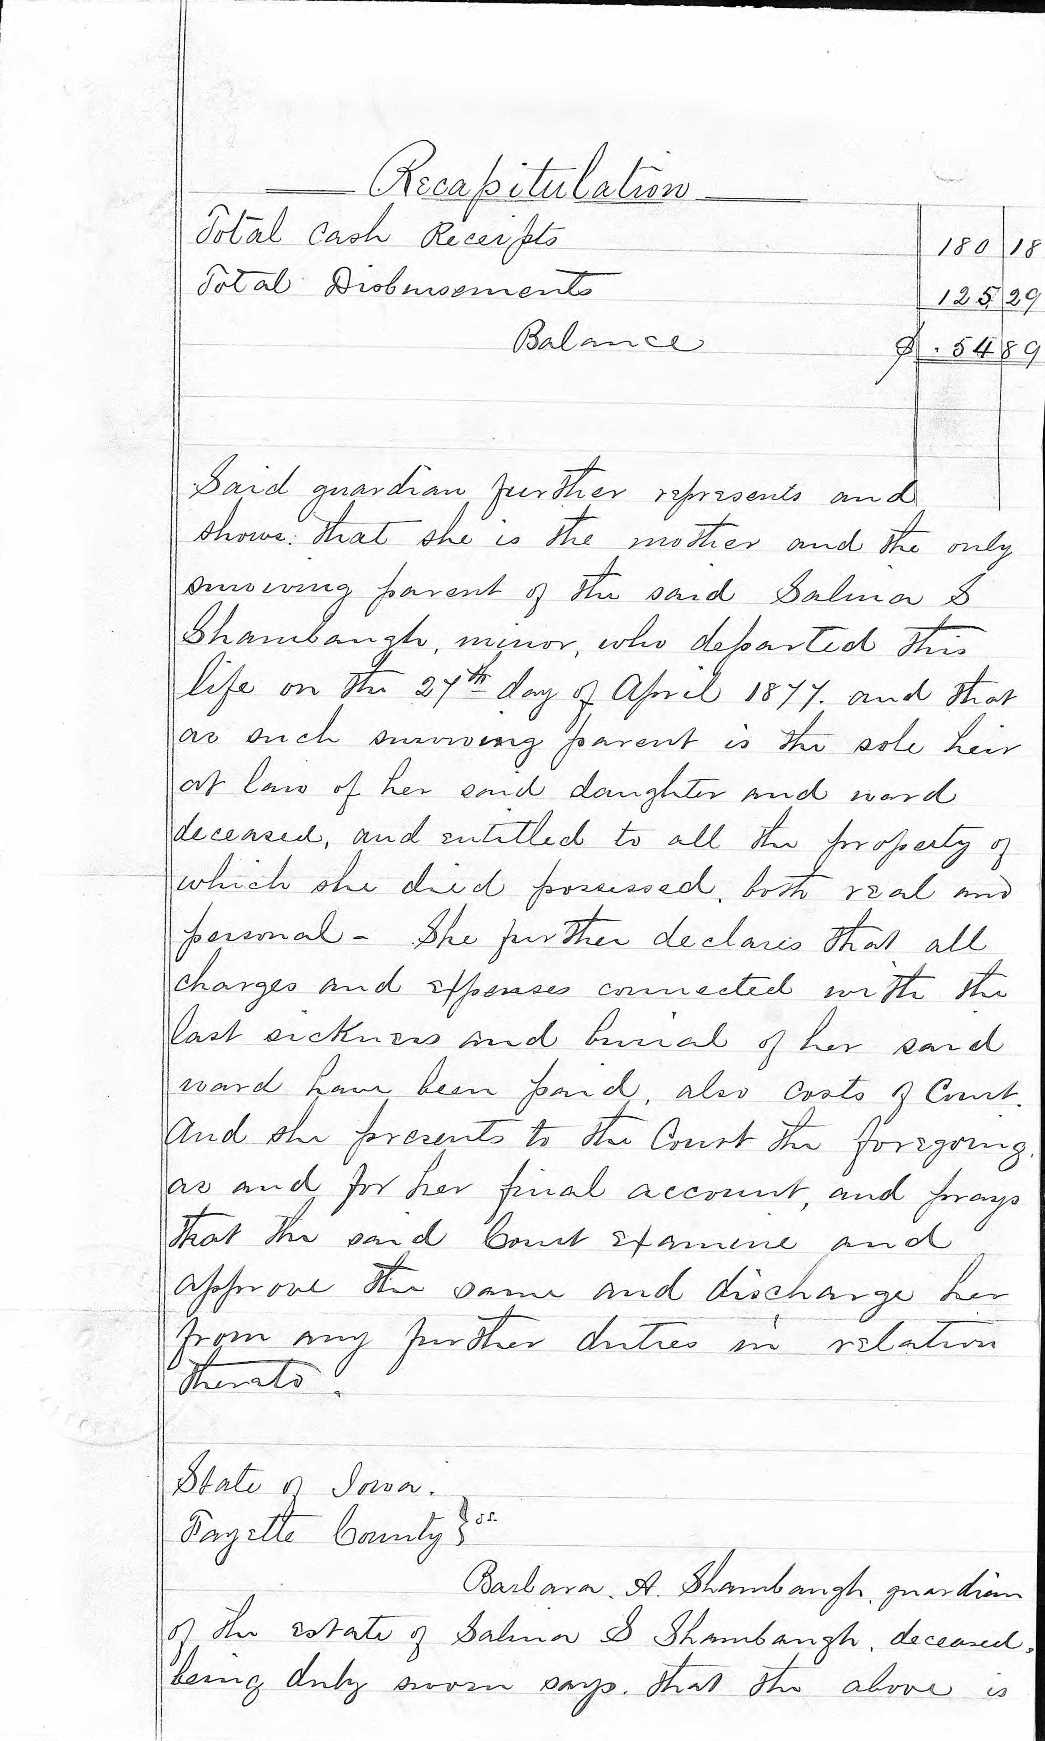 Recapitulation
Total Cash Receipts 180 18
Total Disbursements 125 29
Balance $ . 54 89
Said guardian further represents and
shows: that she is the mother and the only
surviving parent of the said Salina S
Shambaugh, minor, who departed this
life on the 27th day of April 1877. and that
as such surviving parent is the sole heir
at law of her said daughter and ward
deceased, and entitled to all the property of
which she died possessed, both real and
personal - She further declares that all
charges and expenses connected with the
last sickness and burial of her said
ward have been paid, also costs of Court.
And she presents to the Court the foregoing.
as and for her final account, and prays
that the said Court examine and
approve the same and discharge her
from any further duties in relation
thereto.
State of Iowa.
Fayette County } ss.
Barbara. A. Shambaugh, guardian
of the estate of Salina S Shambaugh, deceased,
being duly sworn says. that the above is